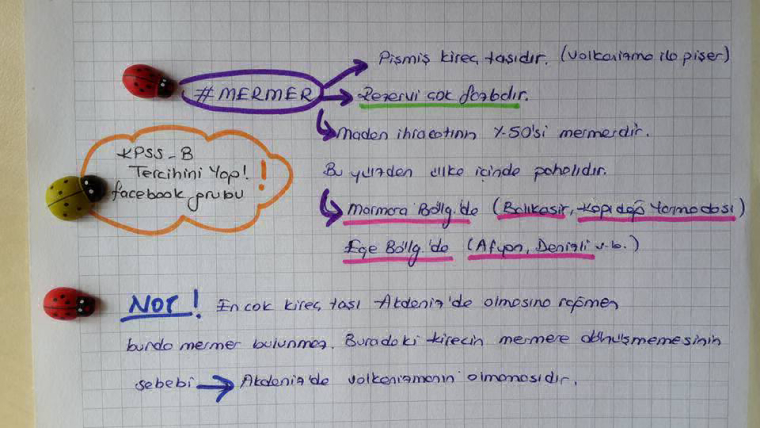 Pişmiş kireç taşıdır. (volkanizma ile pişer)
#MERMER
Rezervi çok fazladır.
Maden ihracatının %50'si mermerdir.
Bu yüzden ülke içinde pahalıdır.
Marmara Bölg.'de (Balıkesir, Kapıdağ Yarmadası)
Ege Bölg.'de (Afyon, Denizli v.b.)
KPSS-B
Tercihini Yap!
facebook grubu
!
NOT! En çok kireç taşı Akdeniz'de olmasına rağmen
burda mermer bulunmaz. Buradaki kirecin mermere dönüşmemesinin
sebebi → Akdeniz'de volkanizmanın olmamasıdır.